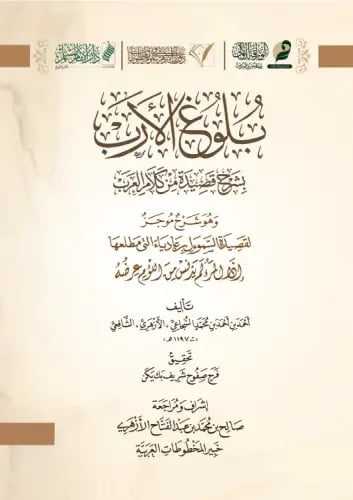 بُلُوغُ الأَرَبْ
بِشَرْحِ قَصِيدَةٍ مِنْ كَلَامِ العَرَبْ
وَهُوَ شَرْحٌ مُوجَزٌ
لِقَصِيدَةِ السَّمَوْأَلِ بْنِ عَادِيَاءَ الَّتِي مَطْلَعُهَا
إِذَا المَرْءُ لَمْ يَدْنَسْ مِنَ اللُّؤْمِ عِرْضُهُ
تَأْلِيف
أَحْمَدَ بْنِ أَحْمَدَ بْنِ مُحَمَّدٍ السُّجَاعِيِّ، الأَزْهَرِيِّ، الشَّافِعِيِّ
(ت ١١٩٧ هـ)
تَحْقِيق
فَرَج صَفُوح شَرِيف بَك يَكَن
إِشْرَاف وَمُرَاجَعَة
صَالِح بْن مُحَمَّد بْن عَبْد الفَتَّاح الأَزْهَرِي
خَبِير المَخْطُوطَات العَرَبِيَّة